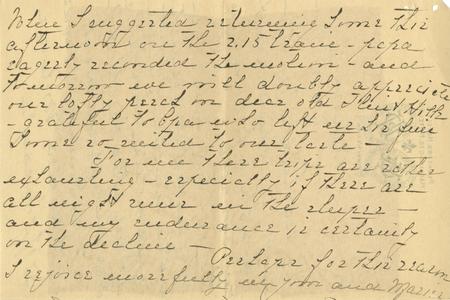 When I suggested returning home this
afternoon on the 2.15 train - papa
eagerly seconded the motion - and
tomorrow we will doubly appreciate
our lofty perch on dear old Hill
- grateful to papa who left us his fine
home so suited to our taste -
For me these trips are rather
exhausting - especially if there are
all night runs in the sleeper -
and my endurance is certainly
on the decline -
Perhaps for this reason
I rejoice more fully in your and Marie